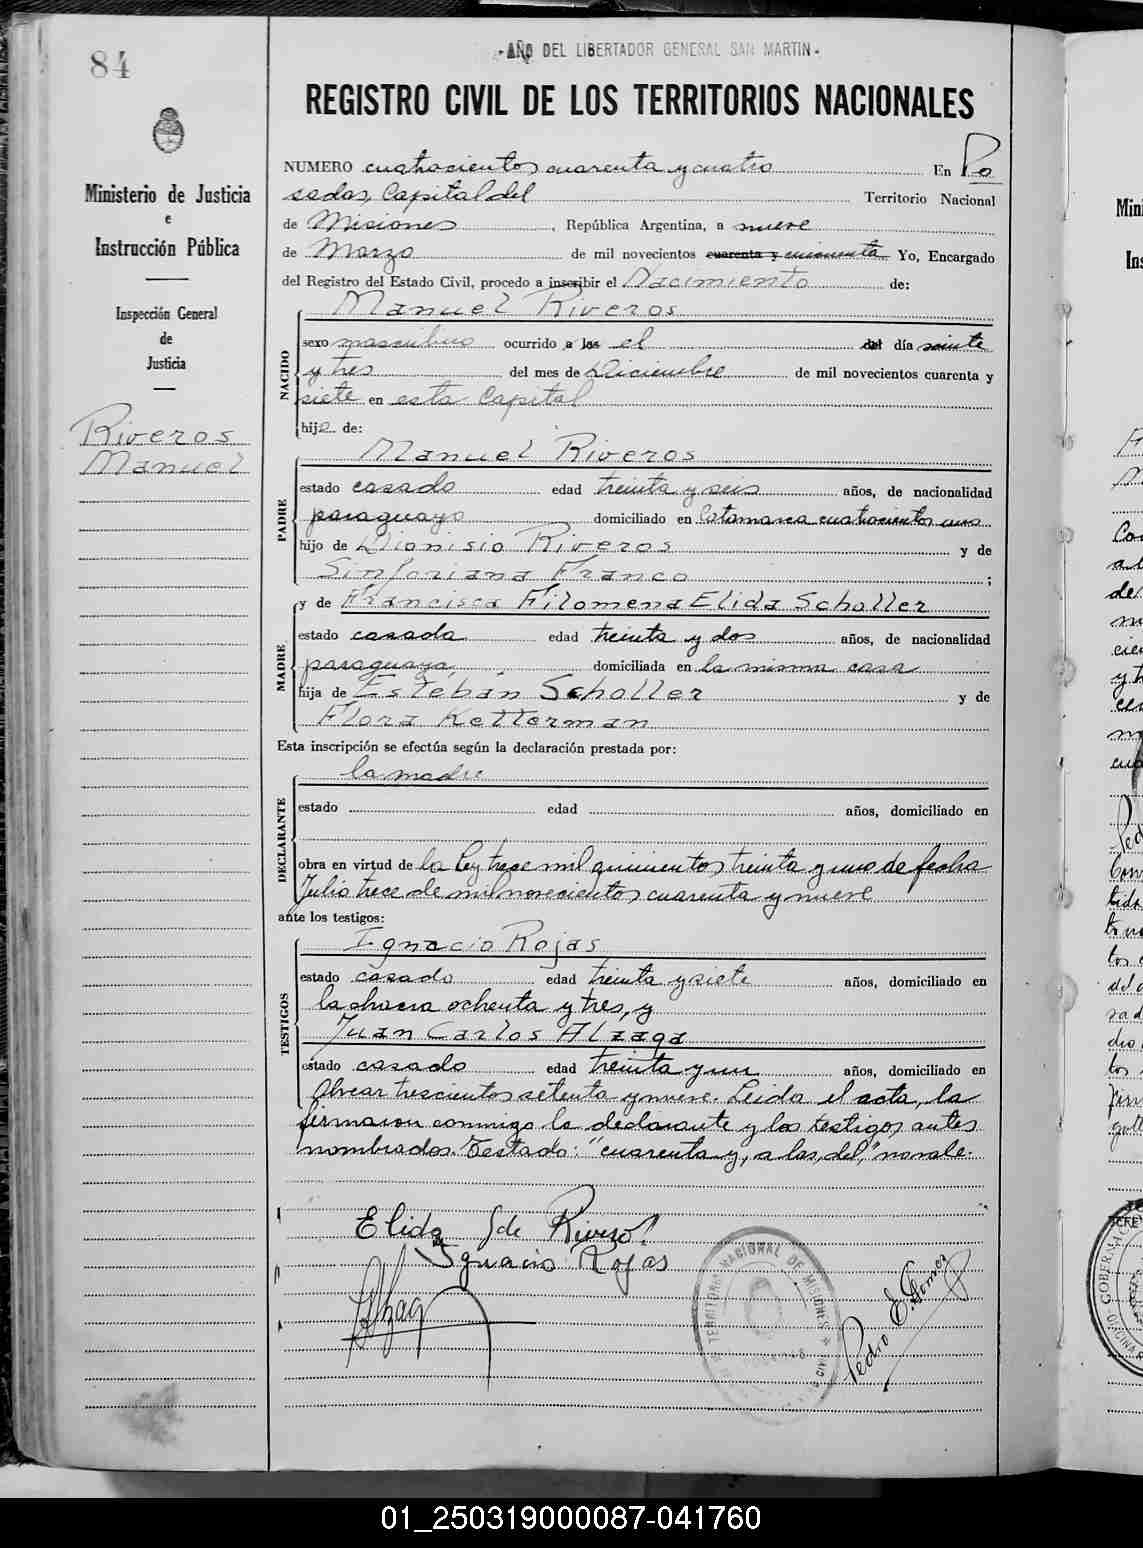 84
-AÑO DEL LIBERTADOR GENERAL SAN MARTIN-
REGISTRO CIVIL DE LOS TERRITORIOS NACIONALES
Ministerio de Justicia
e
Instrucción Pública
Inspección General
de
Justicia
Riveros
Manuel
NUMERO cuatrocientos cuarenta y cuatro En Po
sadas, Capital del Territorio Nacional
de Misiones, República Argentina, a nueve
de Marzo de mil novecientos cuarenta y cincuenta Yo, Encargado
del Registro del Estado Civil, procedo a inscribir el Nacimiento de:
Manuel Riveros
NACIDO
sexo masculino ocurrido a las el del día veinte
y tres del mes de Diciembre de mil novecientos cuarenta y
siete en esta Capital
hijo de:
Manuel Riveros
PADRE
estado casado edad treinta y seis años, de nacionalidad
paraguayo domiciliado en Catamarca cuatrocientos uno
hijo de Dionisio Riveros y de
Sinforiana Franco;
y de Francisca Filomena Elida Scholler
MADRE
estado casada edad treinta y dos años, de nacionalidad
paraguaya domiciliada en la misma casa
hija de Estéban Scholler y de
Flora Ketterman
Esta inscripción se efectúa según la declaración prestada por:
la madre
DECLARANTE
estado edad años, domiciliado en
obra en virtud de la ley trece mil quinientos treinta y uno de fecha
Julio trece de mil novecientos cuarenta y nueve
ante los testigos:
Ignacio Rojas
TESTIGOS
estado casado edad treinta y siete años, domiciliado en
la chacra ochenta y tres, y
Juan Carlos Alzaga
estado casado edad treinta y un años, domiciliado en
Alvear trescientos setenta y nueve. Leida el acta, la
firmaron conmigo la declarante y los testigos antes
nombrados. Testado: "cuarenta y, a las, del," no vale.
Elida S de Riveros
Ignacio Rojas
Alzaga
TERRITORIO NACIONAL DE MISIONES
Pedro E. Gomez
01_250319000087-041760